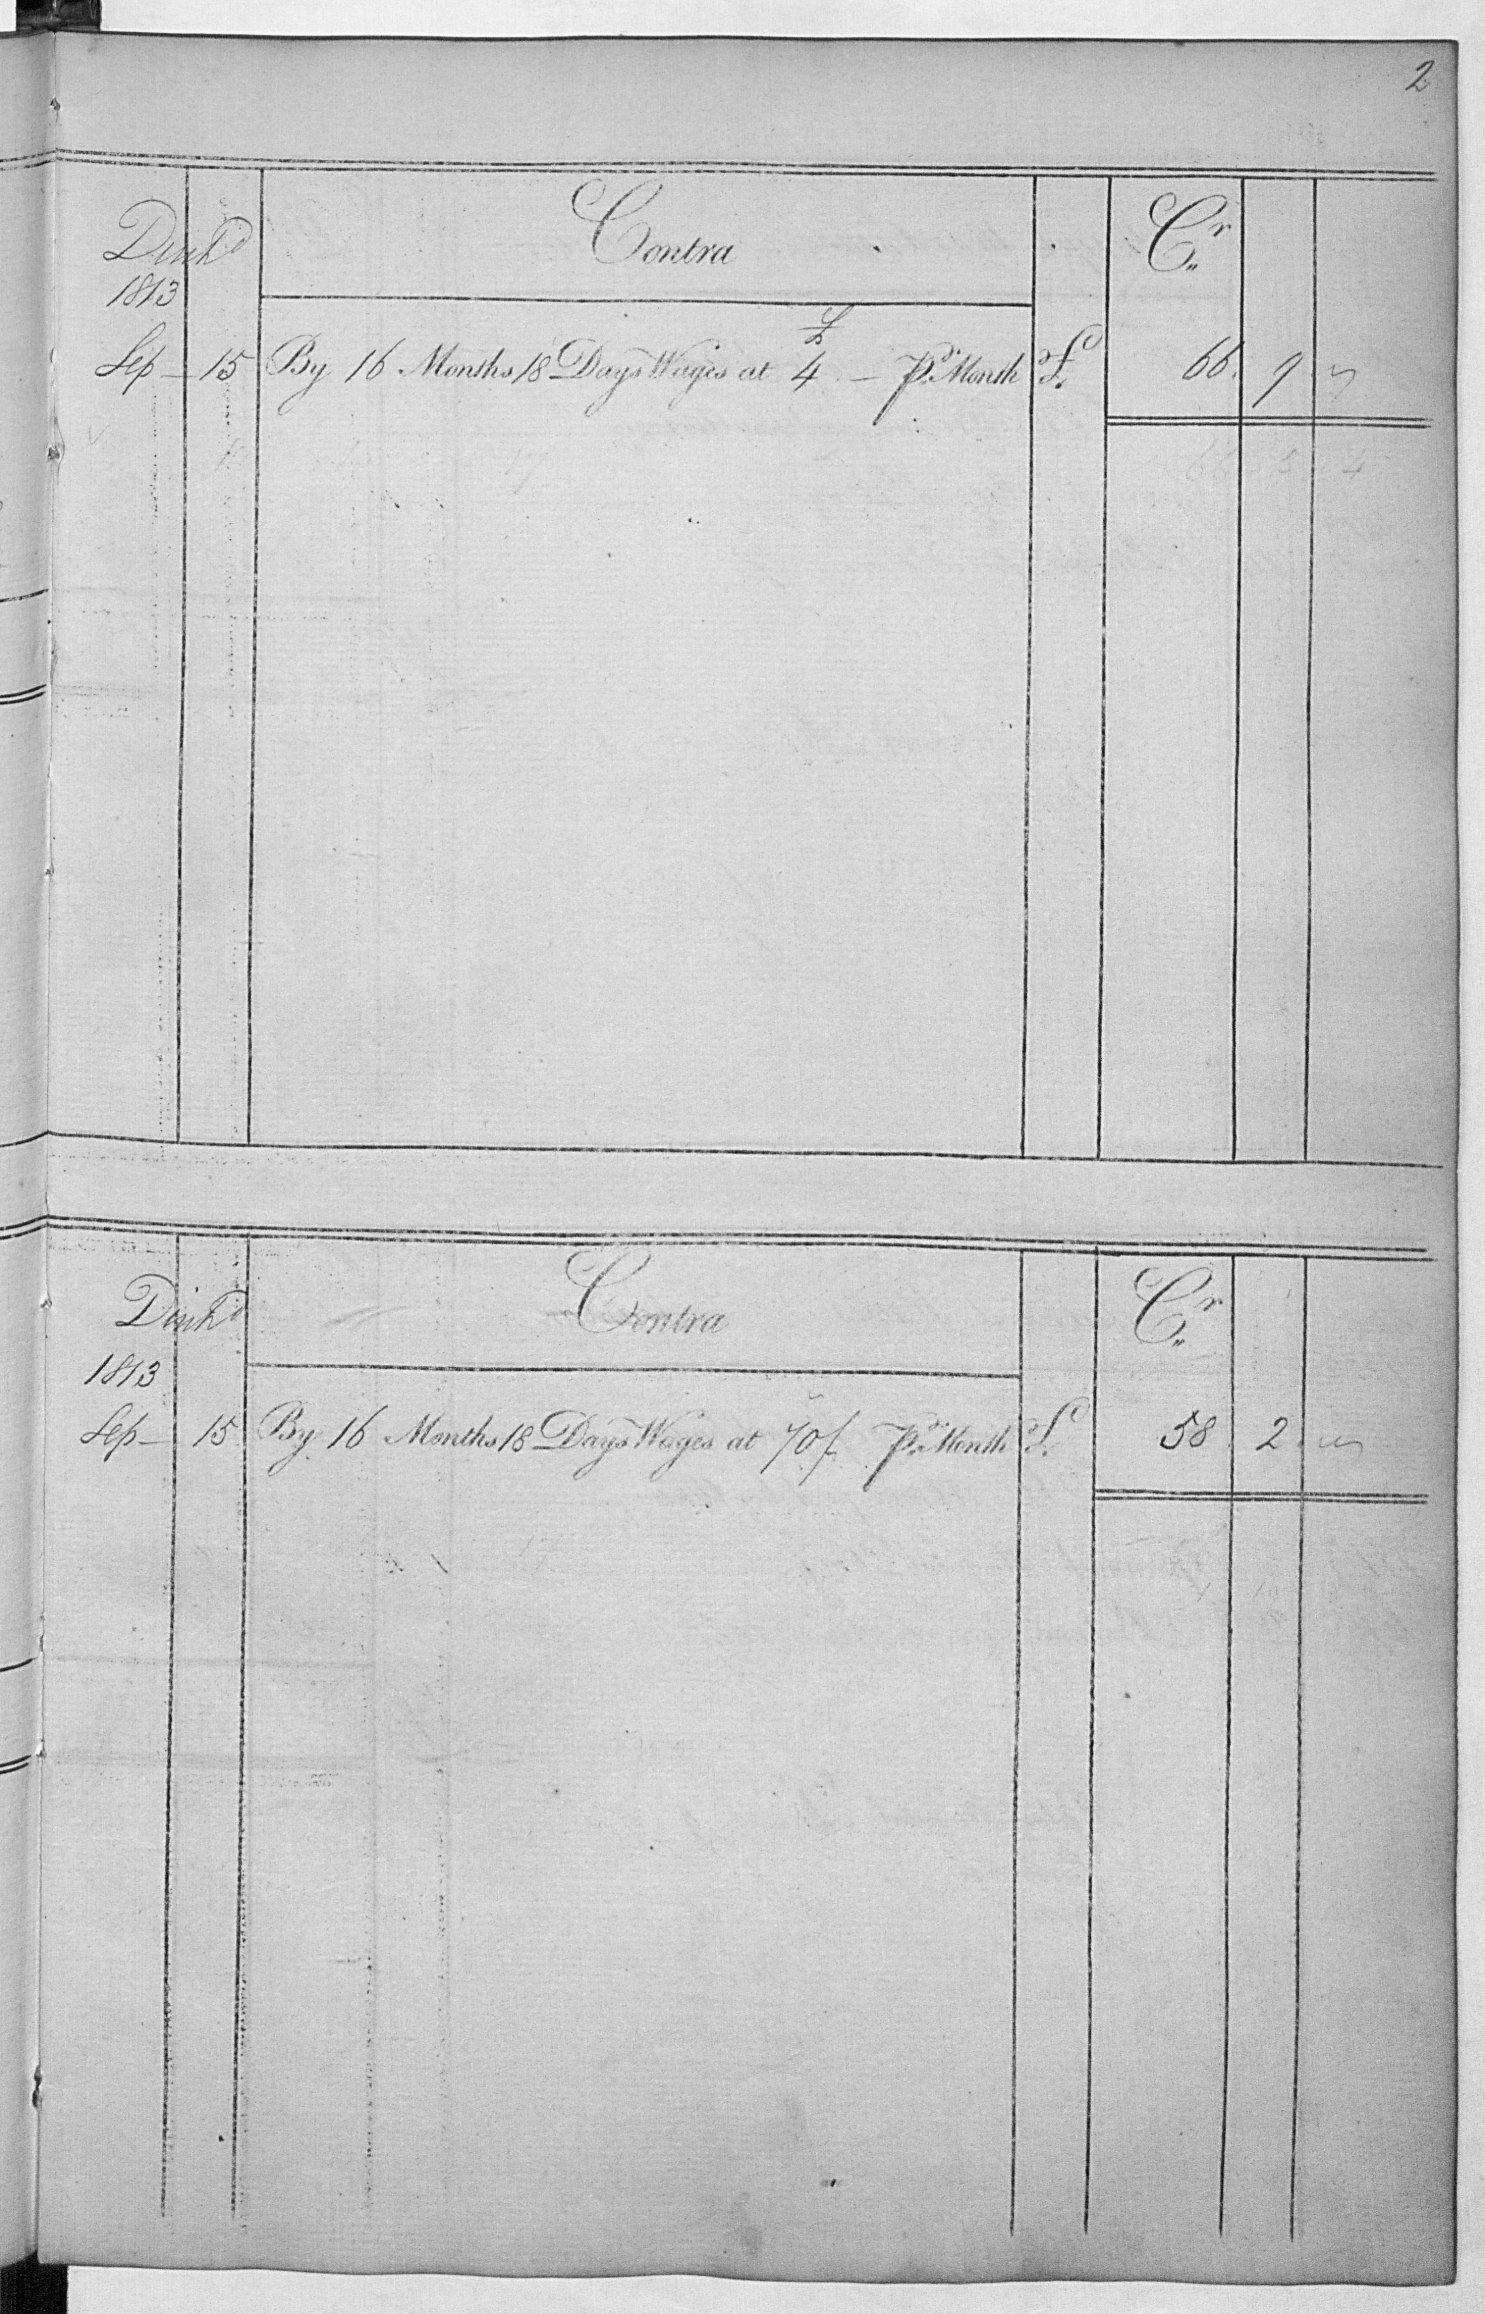 2
Contra Cr
Disch'd
1813
£
Sep 15 By 16 Months 18 Days Wages at 4 - Pr Month £ 66 9
Contra Cr
Disch'd
1813
Sep 15 By 16 Months 18 Days Wages at 70/ Pr Month £ 58 2